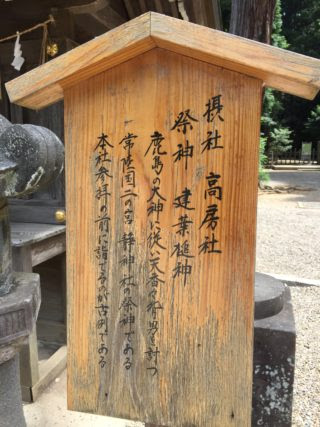 摂社 高房社
祭神 建葉槌神
鹿島の大神に従い天香々背男を討つ
常陸国二の宮 静神社の祭神である
本社参拝の前に詣でるのが古例である